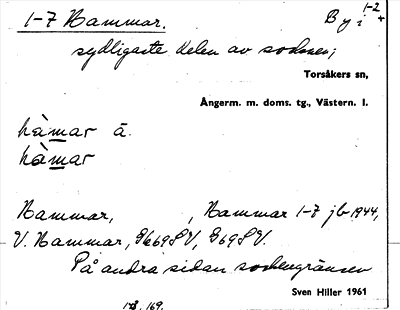 1-7 Hammar. By i 1-2 +
sydligaste delen av socknen;
Torsåkers sn,
Ångerm. m. doms. tg., Västern. l.
hàmar ā.
hàmar
Hammar, , Hammar 1-7 jb 1944,
V. Hammar, G669SV, G69SV.
På andra sidan sockengränsen
Sven Hiller 1961
128. 169.